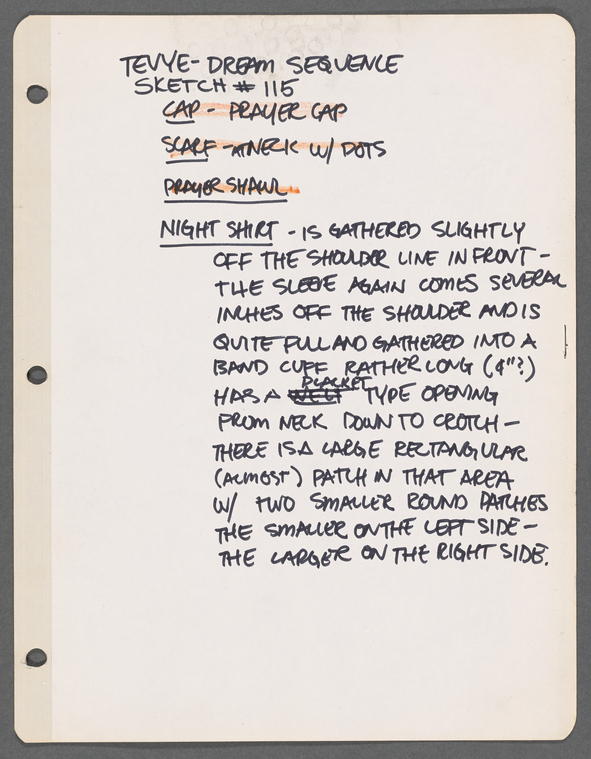 TEVYE- DREAM SEQUENCE
SKETCH # 115
CAP - PRAYER CAP
SCARF - AT NECK W/ DOTS
PRAYER SHAWL
NIGHT SHIRT - IS GATHERED SLIGHTLY
OFF THE SHOULDER LINE IN FRONT -
THE SLEEVE AGAIN COMES SEVERAL
INCHES OFF THE SHOULDER AND IS
QUITE FULL AND GATHERED INTO A
BAND CUFF RATHER LONG (4"?)
HAS A PLACKET TYPE OPENING
FROM NECK DOWN TO CROTCH -
THERE IS A LARGE RECTANGULAR
(ALMOST) PATCH IN THAT AREA
W/ TWO SMALLER ROUND PATCHES
THE SMALLER ON THE LEFT SIDE -
THE LARGER ON THE RIGHT SIDE.